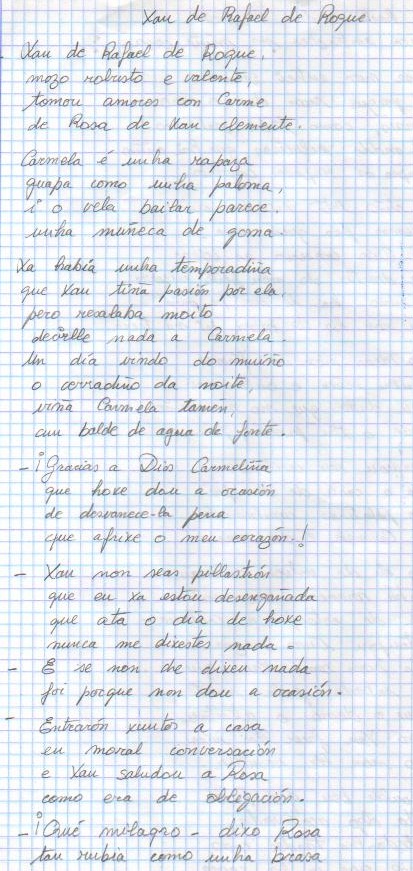 Xan de Rafael de Roque
Xan de Rafael de Roque,
mozo robusto e valente,
tomou amores con Carme
de Rosa de Xan clemente.
Carmela é unha rapaza
guapa como unha paloma,
i o vela bailar parece.
unha muñeca de goma.
Xa había unha temporadiña
que Xan tiña pasión por ela,
pero resalaba moito
decirlle nada a Carmela.
Un día vindo do muiño
o cerradiño da noite,
viña Carmela tamén,
cun balde de agua da fonte.
- ¡Gracias a Dios Carmeliña
que hoxe dou a ocasión
de desvanece-la pena
que aflixe o meu corazón.!
- Xan non seas pillastrón
que eu xa estou desengañada
que ata o día de hoxe
nunca me dixestes nada.
- E se non che dixen nada
foi porque non dou a ocasión.
- Entrarón xuntos a casa
en moral conversación
e Xan saludou a Rosa
como era de obligación.
- ¡Qué milagro - dixo Rosa
tan rubia como unha brasa